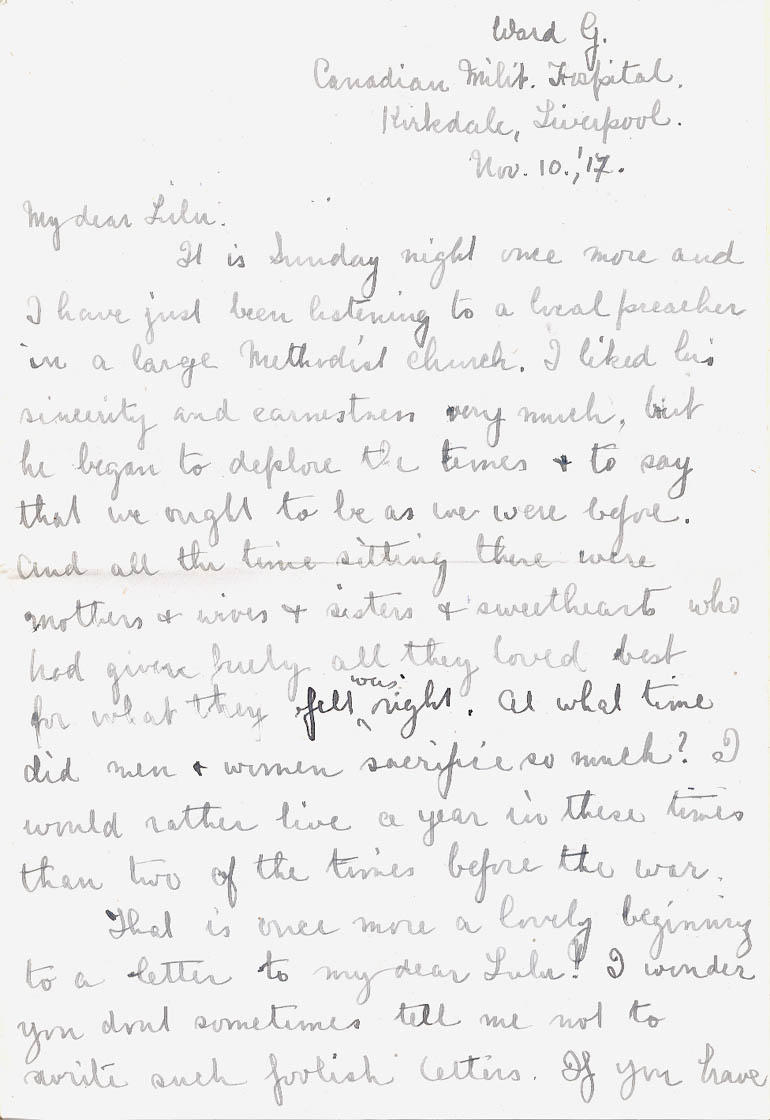 Ward G.
Canadian Milit. Hospital.
Kirkdale, Liverpool.
Nov. 10.,'17.
My dear Lulu:
It is Sunday night once more and
I have just been listening to a local preacher
in a large Methodist church. I liked his
sincerity and earnestness very much, but
he began to deplore the times + to say
that we ought to be as we were before.
And all the time sitting there were
mothers + wives + sisters + sweethearts who
had given freely all they loved best
for what they felt was right. At what time
did men + women sacrifice so much? I
would rather live a year in these times
than two of the times before the war.
That is once more a lovely beginning
to a letter to my dear Lulu! I wonder
you dont sometimes tell me not to
write such foolish letters. If you have